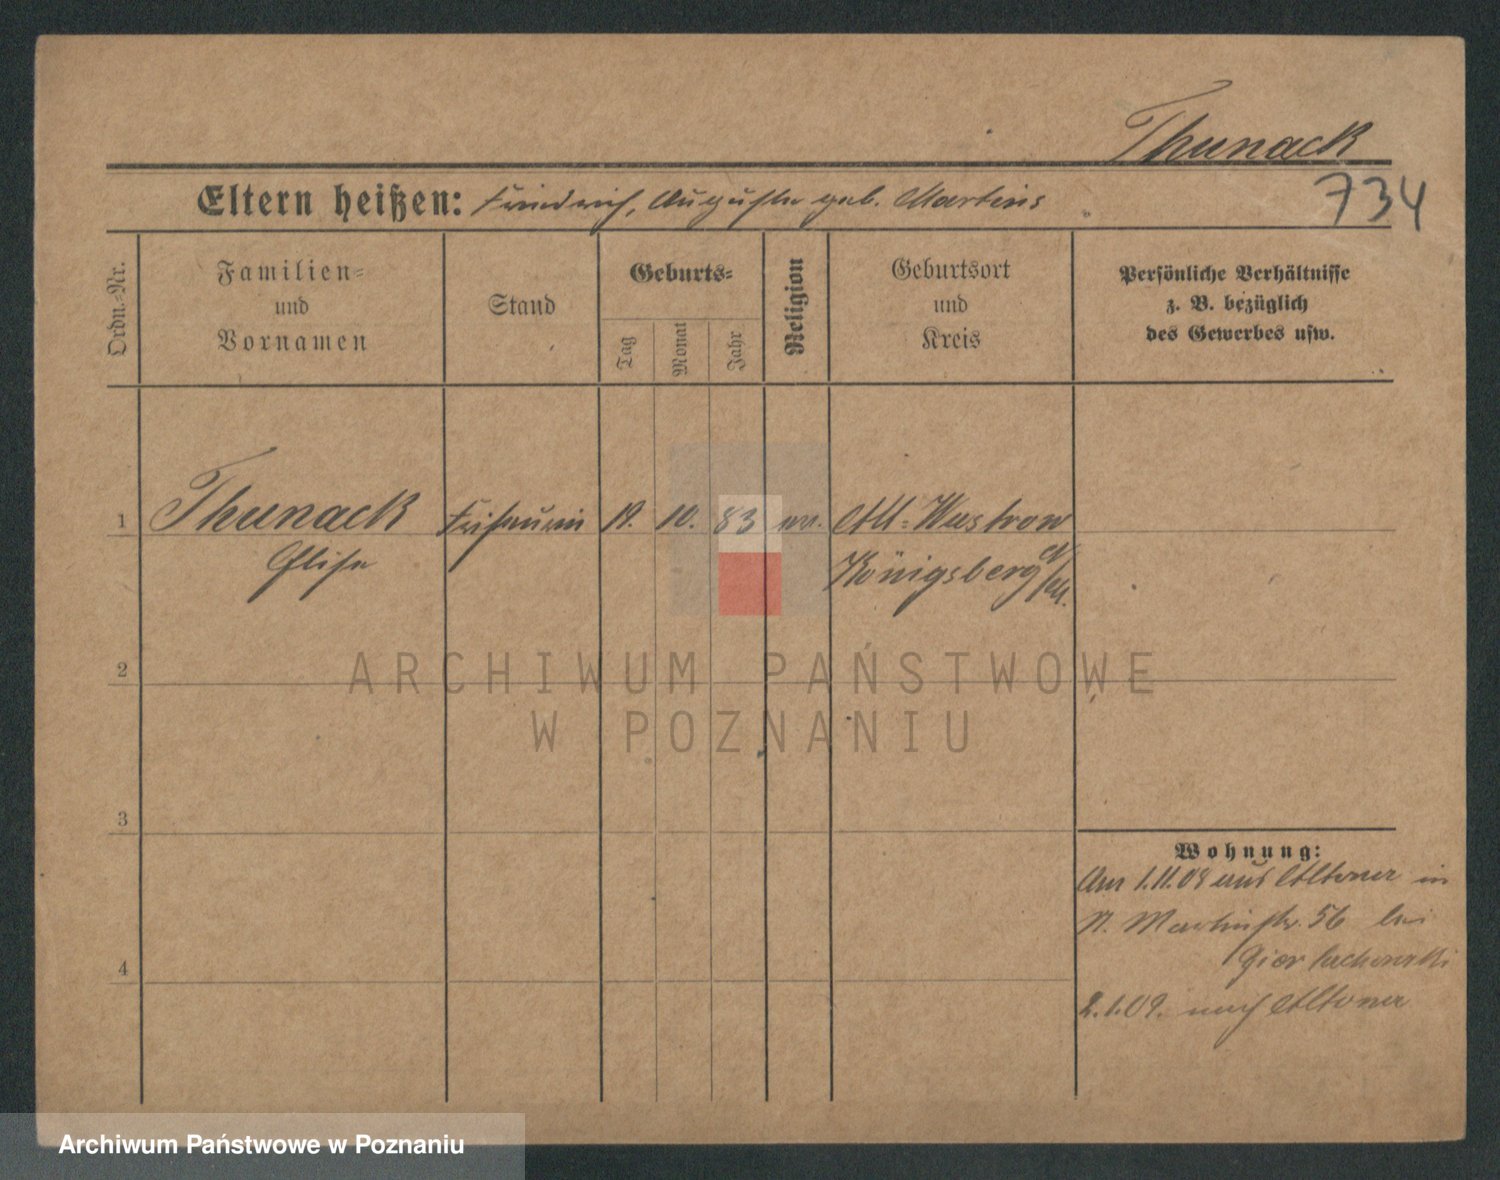 Thunack
734
Eltern heißen: Friedrich, Auguste geb. Martins
Ordn.-Nr.
Familien- und Vornamen
Stand
Geburts-
Tag
Monat
Jahr
Religion
Geburtsort und Kreis
Persönliche Verhältnisse
z. B. bezüglich
des Gewerbes usw.
1 Thunack Friseurin 19. 10. 83 ev. Alt-Wustrow
Elise Königsberg N/M.
2
3
4
Wohnung:
Am 1.11.08 aus Altona in
St. Martinstr. 56 bei
2.1.09. nach Altona
ARCHIWUM PAŃSTWOWE
W POZNANIU
Archiwum Państwowe w Poznaniu